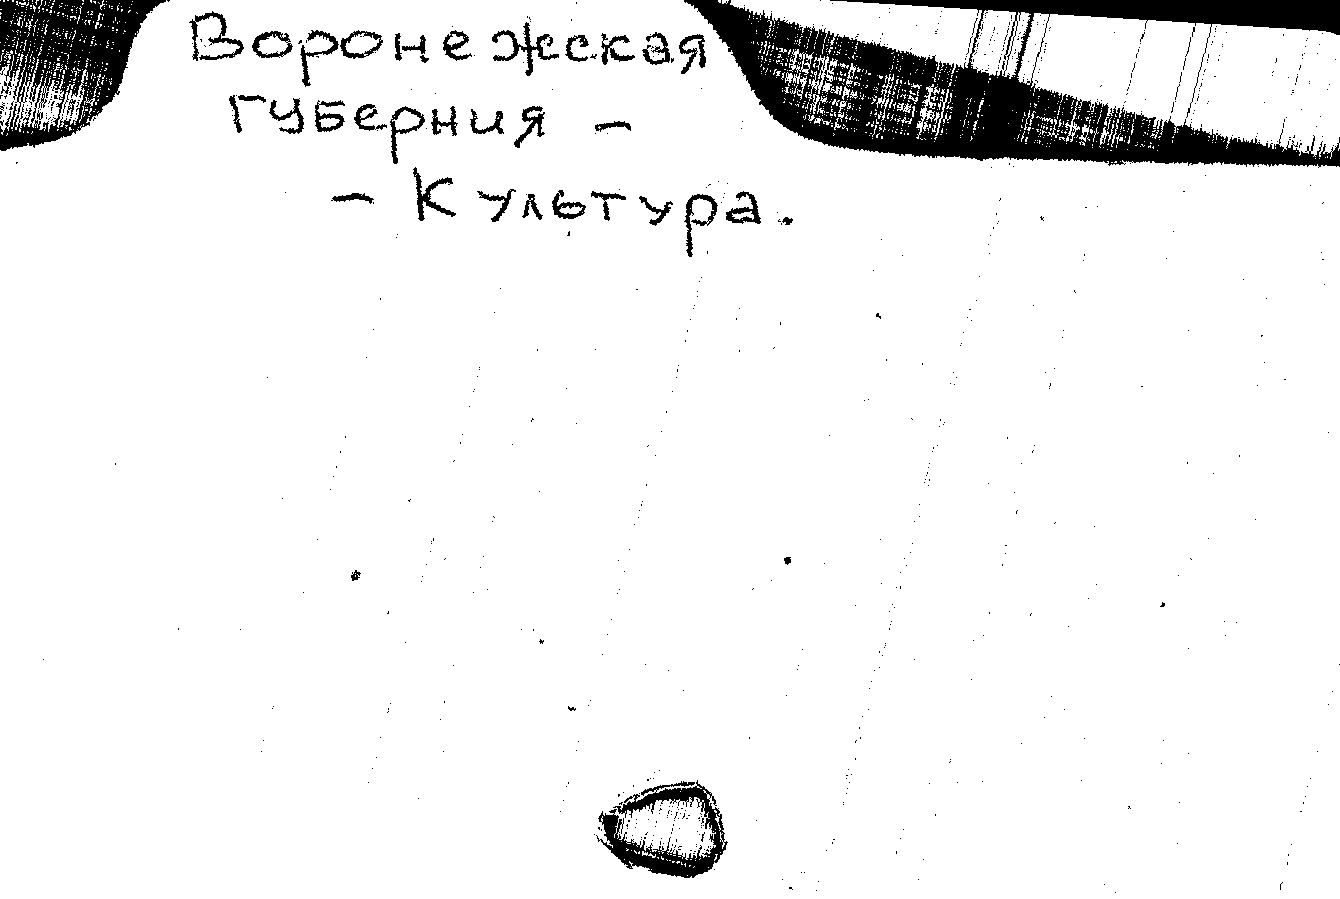 Воронежская
губерния -
- Культура.